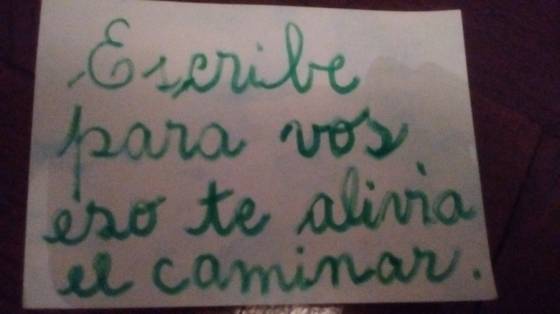 Escribe
para vos
eso te alivia
el caminar.